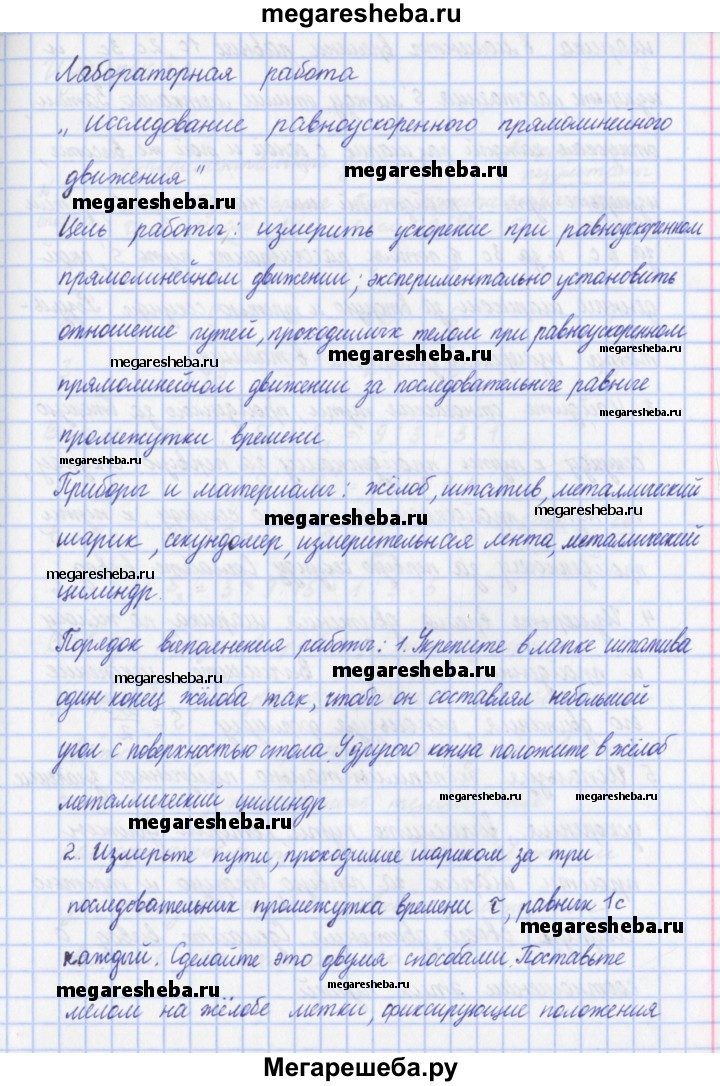 megaresheba.ru
Лабораторная работа
„ Исследование равноускоренного прямолинейного
megaresheba.ru
движения"
megaresheba.ru
Цель работы: измерить ускорение при равноускоренном
прямолинейном движении; экспериментально установить
отношение путей, проходимых телом при равноускоренном
megaresheba.ru
megaresheba.ru
megaresheba.ru
прямолинейном движении за последовательные равные
megaresheba.ru
промежутки времени
megaresheba.ru
Приборы и материалы: жёлоб, штатив, металлический
megaresheba.ru
megaresheba.ru
шарик, секундомер, измерительная лента, металлический
megaresheba.ru
цилиндр.
Порядок выполнения работы: 1. Укрепите в лапке штатива
megaresheba.ru
megaresheba.ru
один конец жёлоба так, чтобы он составлял небольшой
угол с поверхностью стола. У другого конца положите в жёлоб
металлический цилиндр
megaresheba.ru
megaresheba.ru
megaresheba.ru
2. Измерьте пути, проходимые шариком за три
последовательных промежутка времени τ, равных 1с
megaresheba.ru
каждый. Сделайте это двумя способами. Поставьте
megaresheba.ru
megaresheba.ru
мелом на жёлобе метки, фиксирующие положения
Мегарешеба.ру